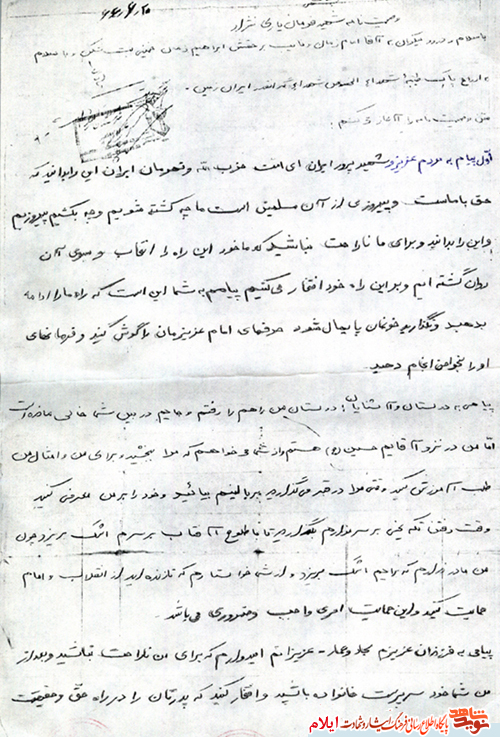 ۶۴/۶/۲۵
وصیت نامه شهید قهرمان یاری نژاد
با سلام و درود بیکران به آقا امام زمان و نایب بر حقش ابراهیم زمان خمینی بت شکن و با سلام
به ارواح پاک شهدا الخصوص شهدای گرانقدر ایران زمین -
متن وصیت نامه را آغاز می کنم:
اول پیام به مردم عزیز و شهید پرور ایران ای امت حزب الله و قهرمان ایران این را بدانید که
حق با ماست و پیروزی از آن مسلمین است ما چه کشته شویم و چه بکشیم پیروزیم
و این را بدانید و برای ما ناراحت نباشید که ما خود این راه را انتخاب و بسوی آن
روان گشته ایم و بر این راه خود افتخار می کنیم پیامم به شما این است که راه ما را ادامه
بدهید و نگذارید خونمان پایمال شود حرفهای امام عزیزمان را گوش کنید و فرمانهای
او را بنحو احسن انجام دهید
پیامی به دوستان و آشنایان: دوستان من راهم را رفتم و جایم در بین شما خالی مانده است
اما من در نزد آقایم حسین (ع) هستم و از شما می خواهم که مرا ببخشید و برای من و امثال من
طلب آمرزش کنید وقتی مرا در قبر می گذارید بر بالینم بیائید و خود را بر من معرفی کنید
وقت رفتن تکه یخی بر سر مزارم بگذارید تا با طلوع آفتاب بر سرم اشک بریزد چون
من مادر ندارم که برایم اشک بریزد و از شما خواستارم که تا زنده اید از انقلاب و امام
حمایت کنید و این حمایت امری واجب و ضروری می باشد.
پیامی به فرزندان عزیزم - عزیزانم امیدوارم که برای من ناراحت نباشید و بعد از
من شما خود سرپرست خانواده باشید و افتخار کنید که پدرتان را در راه حق و حقیقت
نوید شاهد
پایگاه اطلاع رسانی فرهنگ ایثار و شهادت ایلام